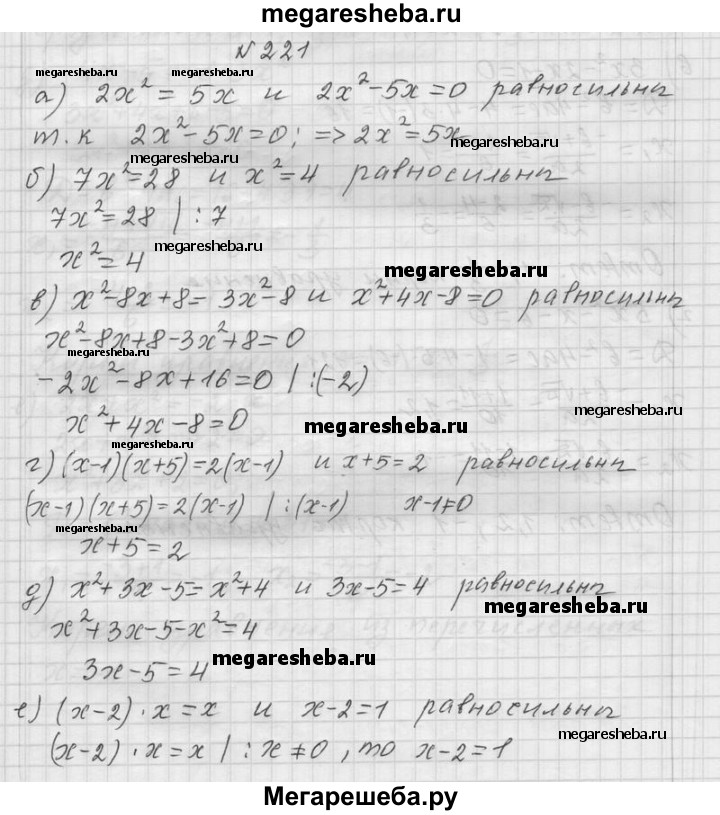 megaresheba.ru
N 221
megaresheba.ru megaresheba.ru
а) 2x² = 5x и 2x²-5x=0 равносильны
т.к 2x²-5x=0; => 2x²=5x
megaresheba.ru
megaresheba.ru
б) 7x²=28 и x²=4 равносильны
7x²=28 | :7
megaresheba.ru
x²=4
megaresheba.ru
в) x²-8x+8=3x²-8 и x²+4x-8=0 равносильны
x²-8x+8-3x²+8=0
megaresheba.ru
-2x²-8x+16=0 | :(-2)
x²+4x-8=0
megaresheba.ru
megaresheba.ru
г) (x-1)(x+5)=2(x-1) и x+5=2 равносильны
(x-1)(x+5)=2(x-1) | :(x-1) x-1≠0
megaresheba.ru
x+5=2
д) x²+3x-5=x²+4 и 3x-5=4 равносильны
megaresheba.ru
x²+3x-5-x²=4
3x-5=4
megaresheba.ru
е) (x-2)·x=x и x-2=1 равносильны
megaresheba.ru
(x-2)·x=x | :x≠0, то x-2=1
Мегарешеба.ру